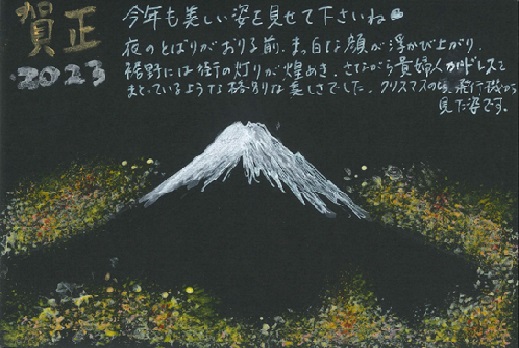 賀正
2023
今年も美しい姿を見せて下さいね
夜のとばりがおりる前、真白な顔が浮かび上がり、
裾野には街の灯りが煌めき、さながら貴婦人がドレスを
まとっているような格別な美しさでした。クリスマスの頃、飛行機から
見た姿です。